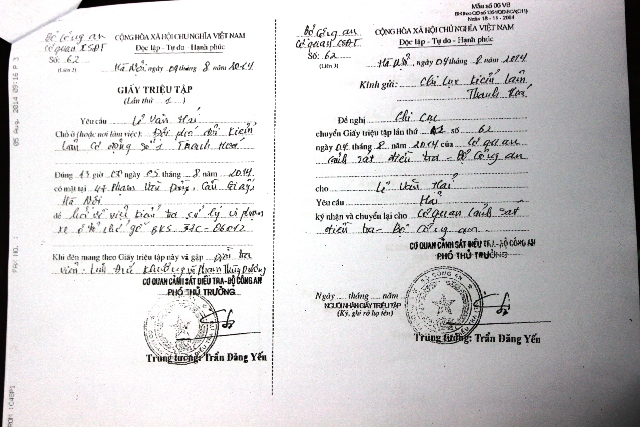 05 Aug 2014 09:16 P 3
FAX NO. :
Bộ Công an
Cơ quan CSĐT
Số: 62
(Liên 2)
CỘNG HÒA XÃ HỘI CHỦ NGHĨA VIỆT NAM
Độc lập - Tự do - Hạnh phúc
Hà Nội, ngày 04 tháng 8 năm 2014
GIẤY TRIỆU TẬP
(Lần thứ 1)
Yêu cầu Lê Văn Hải
Chỗ ở (hoặc nơi làm việc): Đội phó đội kiểm
lâm cơ động số 1 Thanh Hoá
Đúng 13 giờ 00 ngày 05 tháng 8 năm 2014
có mặt tại 47 Phạm Văn Đồng, Cầu Giấy,
Hà Nội
để hỏi về việc kiểm tra xử lý vi phạm
xe ô tô chở gỗ BKS
Khi đến mang theo Giấy triệu tập này và gặp Điều tra
viên và Phạm Thùy Dương
CƠ QUAN CẢNH SÁT ĐIỀU TRA-BỘ CÔNG AN
PHÓ THỦ TRƯỞNG
Trung tướng: Trần Đăng Yến
Mẫu số 06 VB
BH theo QĐ số
Ngày 18-11-2004
Bộ Công an
Cơ quan CSĐT
Số: 62
(Liên 3)
CỘNG HÒA XÃ HỘI CHỦ NGHĨA VIỆT NAM
Độc lập - Tự do - Hạnh phúc
Hà Nội, ngày 04 tháng 8 năm 2014
Kính gửi: Chi cục kiểm lâm
Thanh Hoá
Đề nghị Chi cục
chuyển Giấy triệu tập lần thứ số 62
ngày 04 tháng 8 năm 2014 của Cơ quan
cảnh sát điều tra - Bộ Công an
cho Lê Văn Hải
Yêu cầu Hải
ký nhận và chuyển lại cho Cơ quan cảnh sát
điều tra - Bộ Công an
CƠ QUAN CẢNH SÁT ĐIỀU TRA-BỘ CÔNG AN
PHÓ THỦ TRƯỞNG
Ngày tháng năm
NGƯỜI NHẬN GIẤY TRIỆU TẬP
(Ký, ghi rõ họ tên)
Trung tướng: Trần Đăng Yến